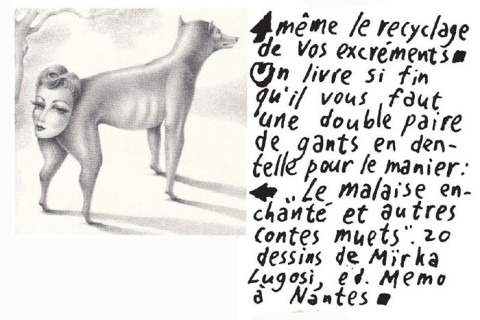 même le recyclage
de vos excréments
Un livre si fin
qu'il vous faut
une double paire
de gants en den-
telle pour le manier:
"Le malaise en-
chanté et autres
contes muets". 20
dessins de Mïrka
Lugosi, ed. Memo
à Nantes